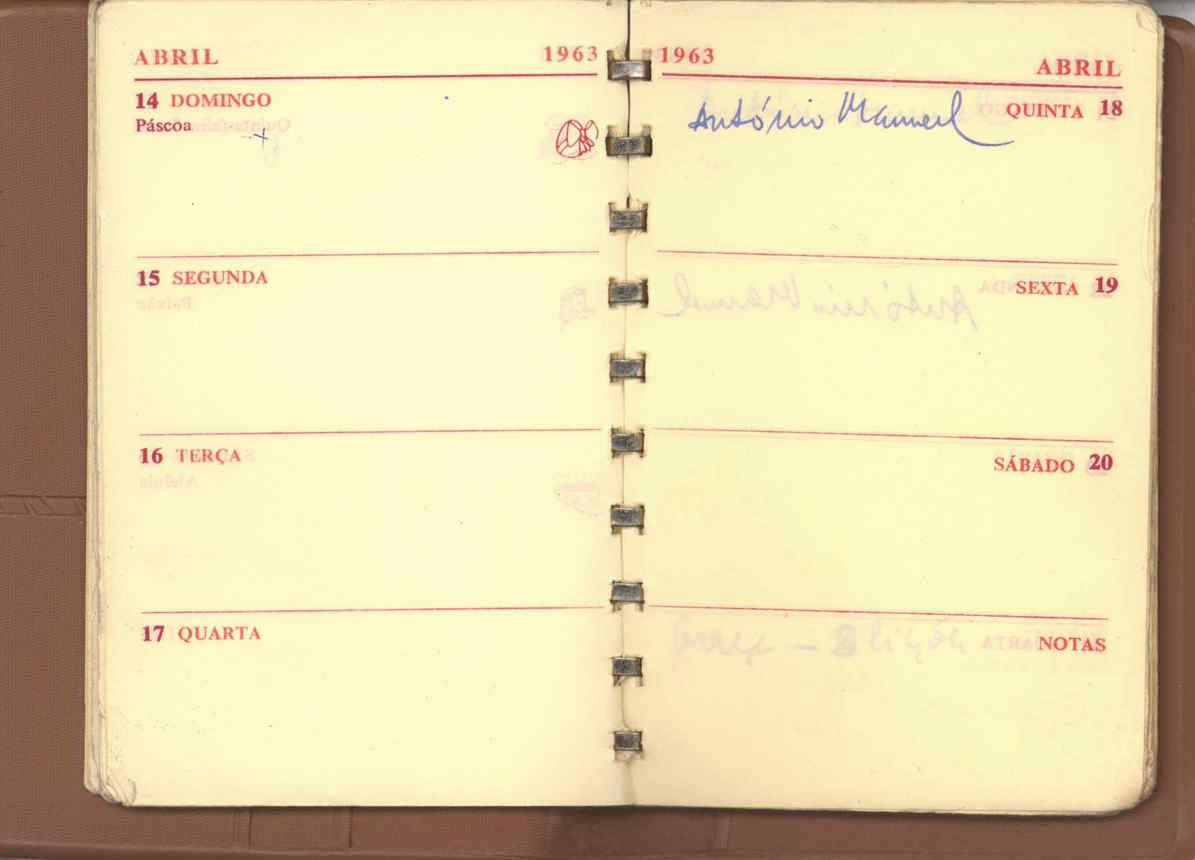 ABRIL 1963
14 DOMINGO
Páscoa
15 SEGUNDA
16 TERÇA
17 QUARTA
1963 ABRIL
António Manuel QUINTA 18
SEXTA 19
SÁBADO 20
NOTAS